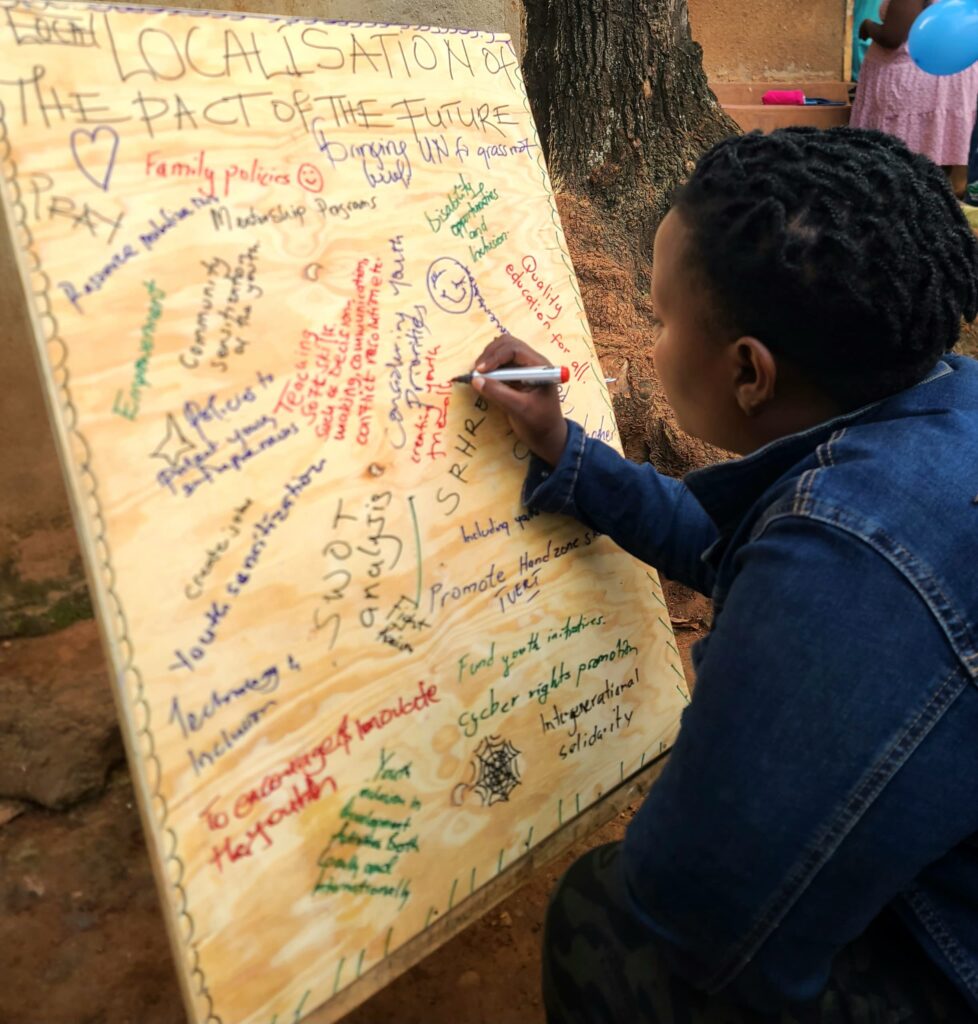 LOCALISATION OF
THE PACT OF THE FUTURE
bringing UN to grassroot
level
Family policies
PRAY
Mentorship Programs
Resource mobilisation
Disability
opportunities
and
Inclusion.
Empowerment
Community
sensitization
of the youth
Teaching
Soft skills
such as decision
making, communication,
conflict resolution etc.
Considering youth
Priorities
creating youth
friendly
Quality
education for all.
Policies to
young
SRHR
create jobs
Youth sensitization
SWOT
analysis
Including
Promote Handzone
TVERT
Technology &
Inclusion
Fund youth initiatives.
Cyber rights promotion
Intergenerational
solidarity
To encourage & Innovate
the youth
Youth
inclusion in
Development
Activities Both
Locally and
internationally